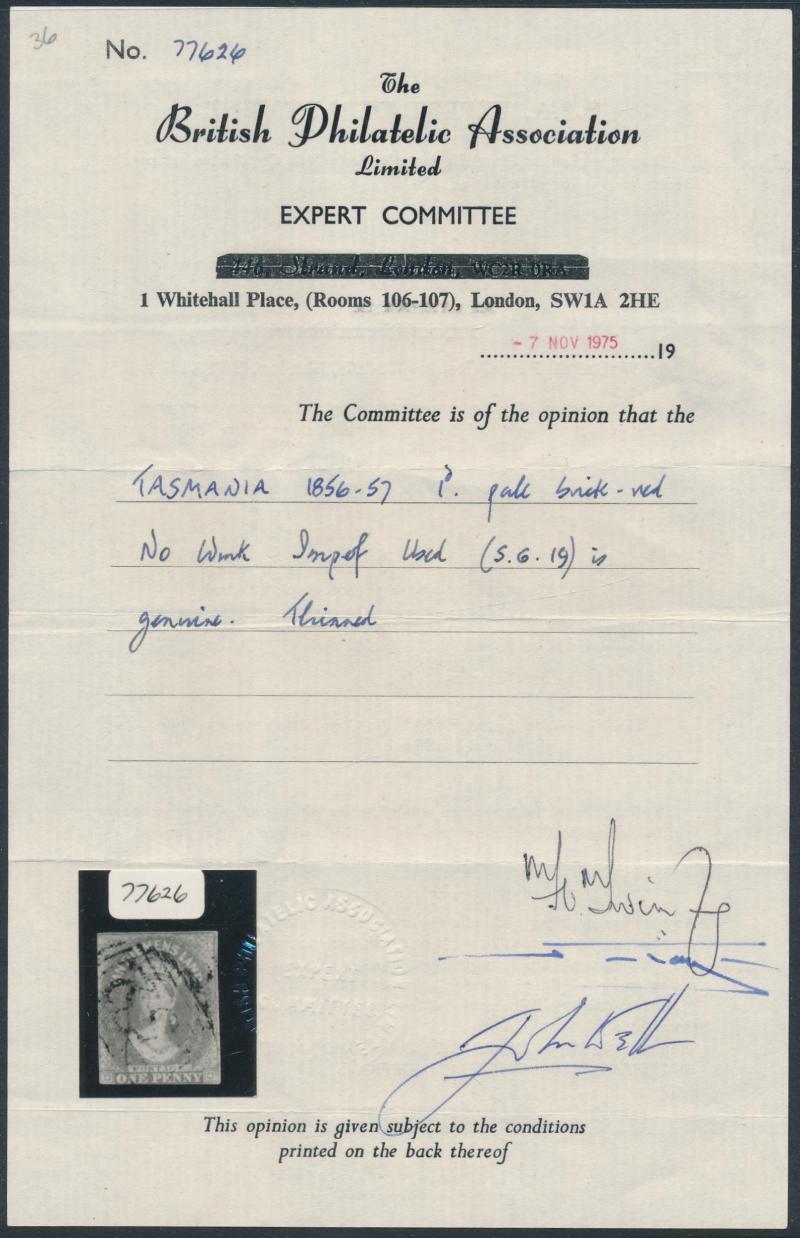 36
No. 77626
The
British Philatelic Association
Limited
EXPERT COMMITTEE
446, Strand, London, WC2R 0RA
1 Whitehall Place, (Rooms 106-107), London, SW1A 2HE
- 7 NOV 1975 19
The Committee is of the opinion that the
TASMANIA 1856-57 1d. pale brick-red
No Wmk Imperf Used (S.G.19) is
genuine. Thinned
77626
PHILATELIC ASSOCIATION
EXPERT
COMMITTEE
VAN DIEMENS LAND
POSTAGE
ONE PENNY
John Bell
This opinion is given subject to the conditions
printed on the back thereof